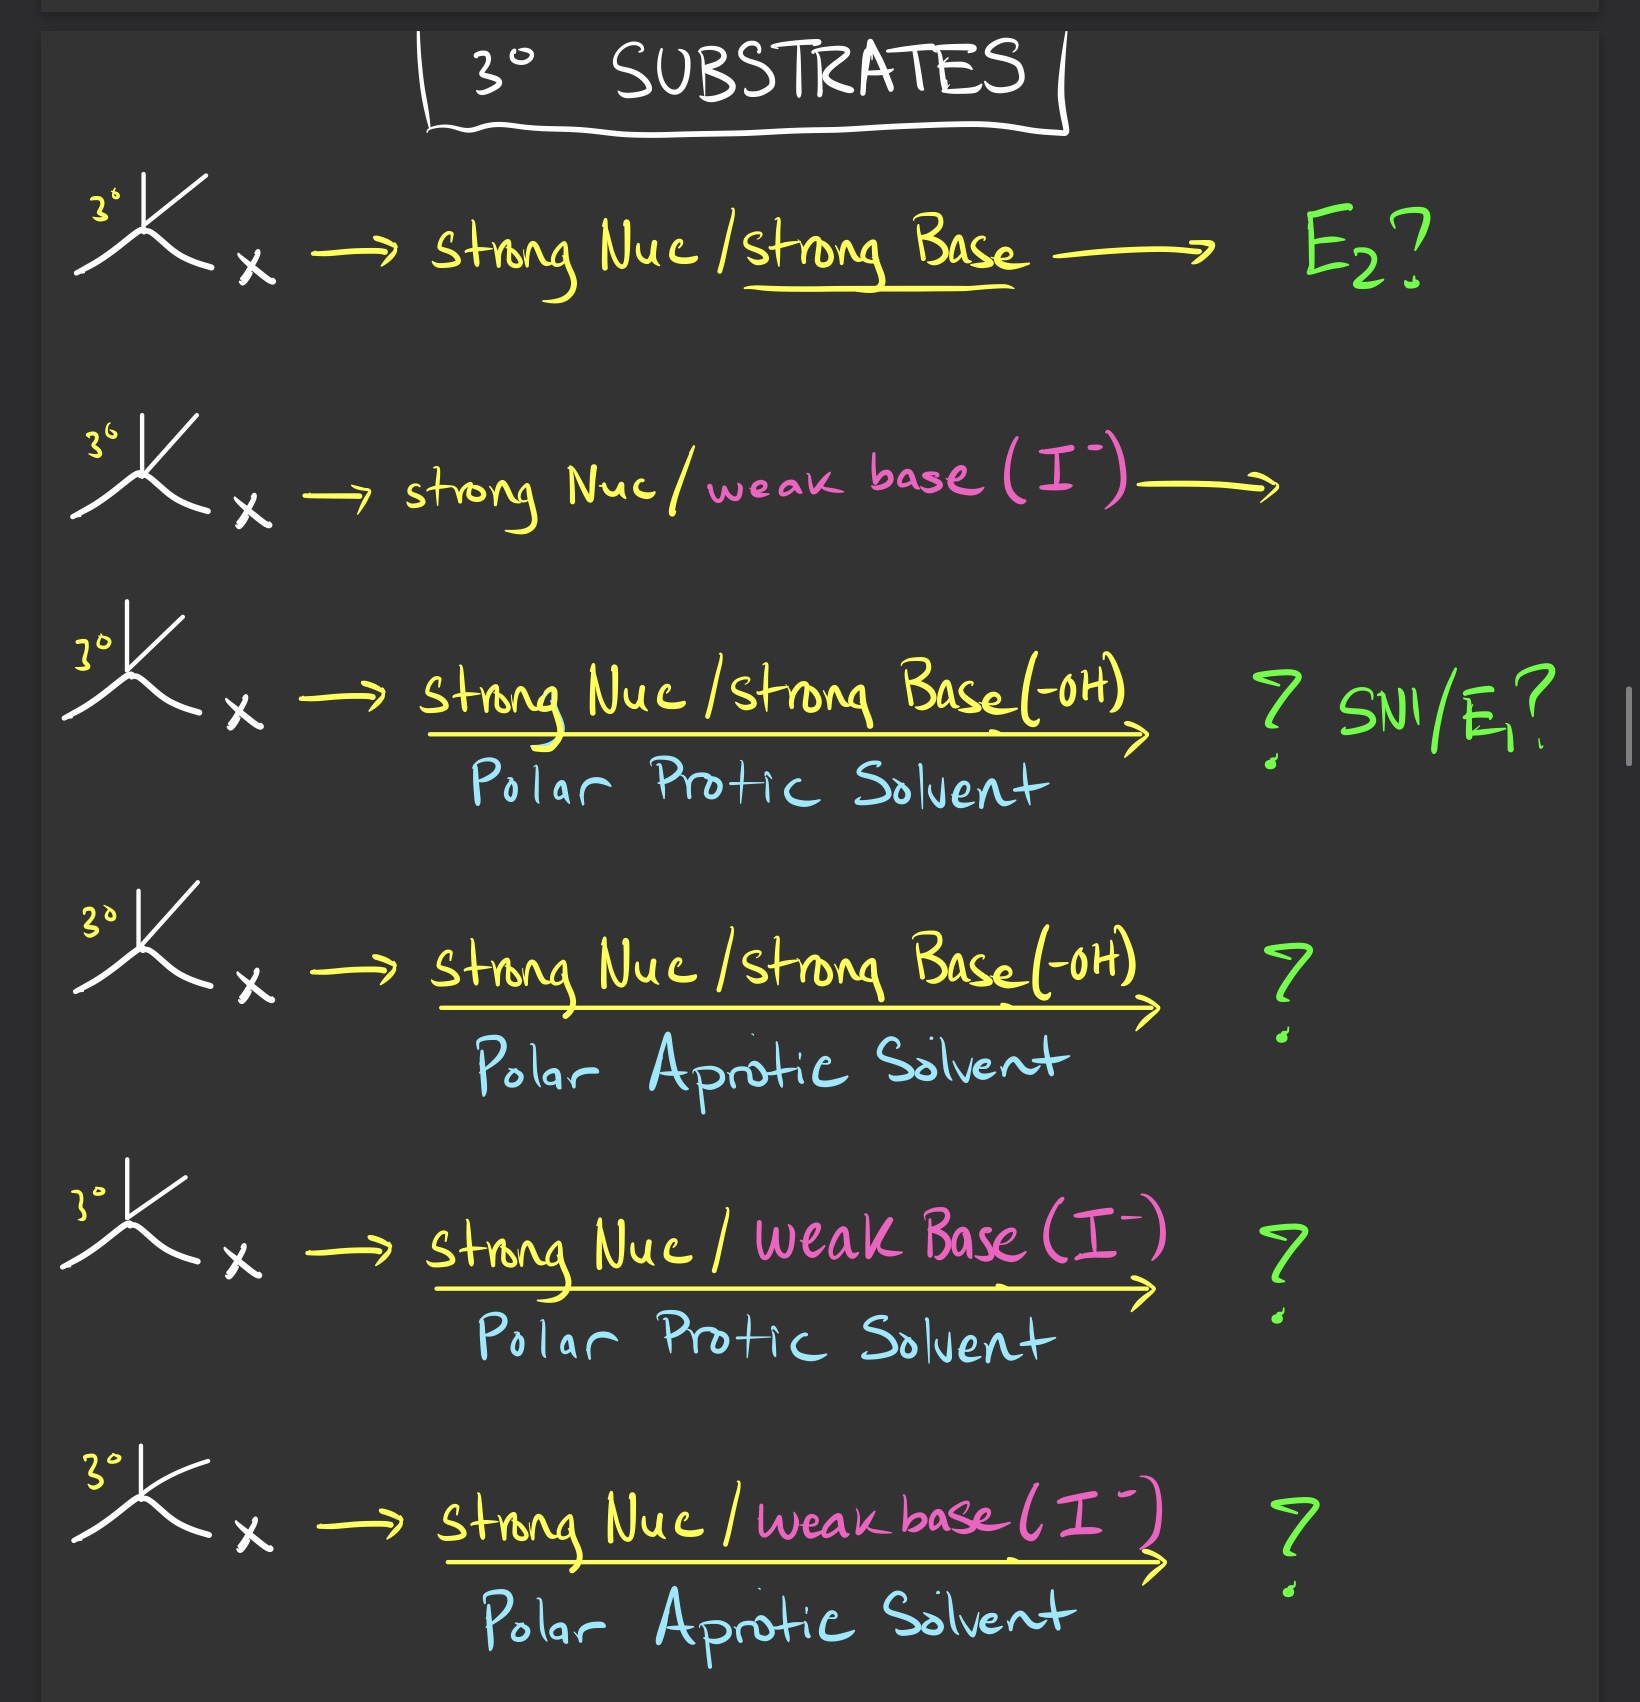 3° SUBSTRATES
3° X → strong Nuc/strong Base → E2?
3° X → strong Nuc/weak base (I⁻) →
3° X → strong Nuc/strong Base(-OH) ? SN1/E1?
Polar Protic Solvent
3° X → strong Nuc/strong Base(-OH) ?
Polar Aprotic Solvent
3° X → strong Nuc/weak Base (I⁻) ?
Polar Protic Solvent
3° X → strong Nuc/weak base (I⁻) ?
Polar Aprotic Solvent